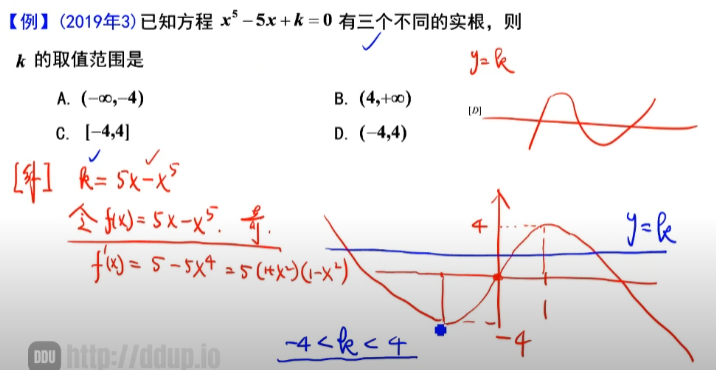 【例】(2019年3) 已知方程 x⁵ − 5x + k = 0 有三个不同的实根，则
k 的取值范围是
y=k
A. (−∞,−4)
B. (4,+∞)
C. [−4,4]
D. (−4,4)
[D]
[解] k= 5x−x⁵
令 f(x)= 5x−x⁵. 奇.
f'(x)= 5−5x⁴ = 5(1+x²)(1−x²)
4
y=k
1
−4
−4<k<4
DDU http://ddup.io